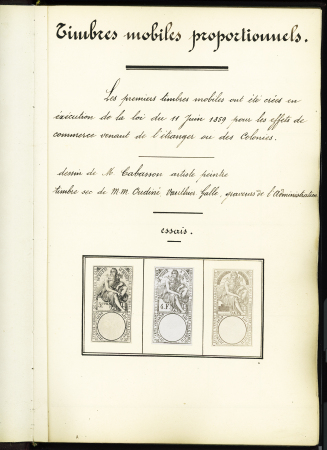 Timbres mobiles proportionnels.
Les premiers timbres mobiles ont été créés en
exécution de la loi du 11 juin 1859 pour les effets de
commerce venant de l'étranger ou des Colonies.
dessin de M. Cabasson artiste peintre
timbre sec de M.M. Oudiné, Vauthier Galle, graveurs de l'Administration
essais.
4 F